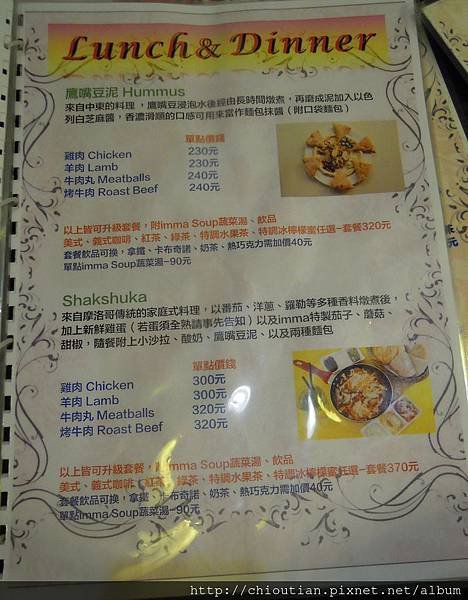 Lunch & Dinner
鷹嘴豆泥 Hummus
來自中東的料理，鷹嘴豆浸泡水後經由長時間燉煮，再磨成泥加入以色
列白芝麻醬，香濃滑順的口感可用來當作麵包抹醬（附口袋麵包）
單點價錢
雞肉 Chicken 230元
羊肉 Lamb 230元
牛肉丸 Meatballs 240元
烤牛肉 Roast Beef 240元
以上皆可升級套餐，附imma Soup蔬菜湯、飲品
美式、義式咖啡、紅茶、綠茶、特調水果茶、特調冰檸檬蜜任選-套餐320元
套餐飲品可換，拿鐵、卡布奇諾、奶茶、熱巧克力需加價40元
單點imma Soup蔬菜湯-90元
Shakshuka
來自摩洛哥傳統的家庭式料理，以番茄、洋蔥、羅勒等多種香料燉煮後，
加上新鮮雞蛋（若蛋須全熟請事先告知）以及imma特製茄子、蘑菇、
甜椒，隨餐附上小沙拉、酸奶、鷹嘴豆泥、以及兩種麵包
單點價錢
雞肉 Chicken 300元
羊肉 Lamb 300元
牛肉丸 Meatballs 320元
烤牛肉 Roast Beef 320元
以上皆可升級套餐，附imma Soup蔬菜湯、飲品
美式、義式咖啡、紅茶、綠茶、特調水果茶、特調冰檸檬蜜任選-套餐370元
套餐飲品可換，拿鐵、卡布奇諾、奶茶、熱巧克力需加價40元
單點imma Soup蔬菜湯-90元
http://chioutian.pixnet.net/album